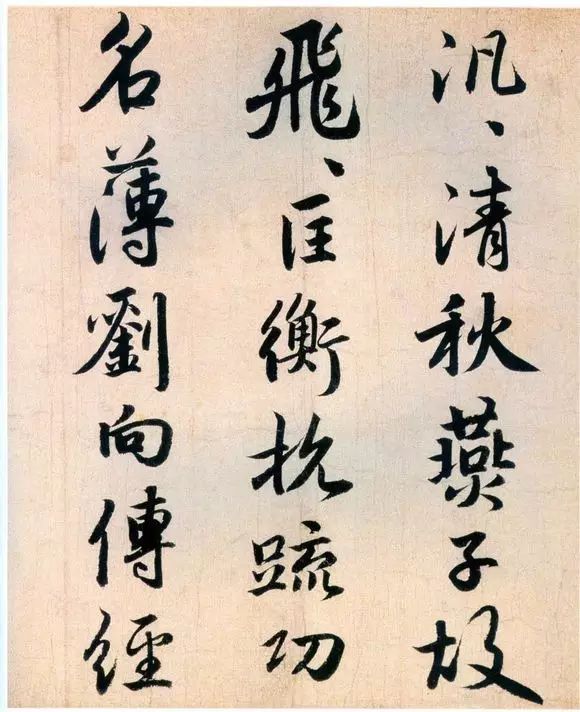 汎〻清秋燕子故
飛〻匡衡抗疏功
名薄劉向傳經